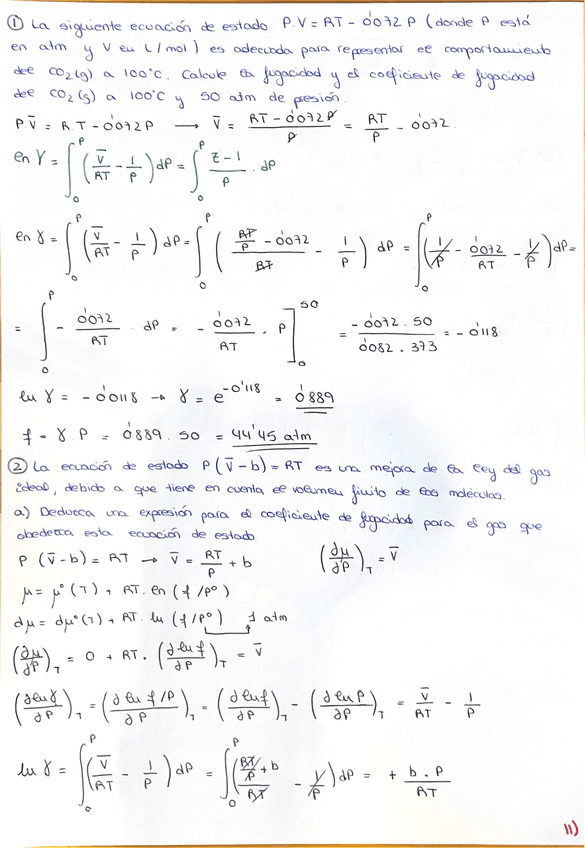 ① La siguiente ecuación de estado P·V = RT − 0'072 P (donde P está
en atm y V en L/mol) es adecuada para representar el comportamiento
del CO₂(g) a 100°C. Calcule la fugacidad y el coeficiente de fugacidad
del CO₂(g) a 100°C y 50 atm de presión.
P·V̄ = R·T − 0'072P → V̄ = (RT − 0'072P)/P = RT/P − 0'072.
ln γ = ∫₀ᴾ (V̄/RT − 1/P) dP = ∫₀ᴾ (Z−1)/P · dP
ln γ = ∫₀ᴾ (V̄/RT − 1/P) dP = ∫₀ᴾ ((RT/P − 0'072)/RT − 1/P) dP = ∫₀ᴾ (1/P − 0'072/RT − 1/P) dP =
= ∫₀ᴾ − 0'072/RT · dP = − 0'072/RT · P]₀⁵⁰ = −0'072·50/0'082·373 = −0'118
ln γ = −0'0118 → γ = e^(−0'118) = 0'889
f = γ·P = 0'889·50 = 44'45 atm
② La ecuación de estado P(V̄−b) = RT es una mejora de la ley del gas
ideal, debido a que tiene en cuenta el volumen finito de las moléculas.
a) Deduzca una expresión para el coeficiente de fugacidad para el gas que
obedezca esta ecuación de estado
P·(V̄−b) = RT → V̄ = RT/P + b (∂μ/∂P)_T = V̄
μ = μ°(T) + RT·ln(f/P°)
dμ = dμ°(T) + RT·ln(f/P°) 1 atm
(∂μ/∂P)_T = 0 + RT·(∂ln f/∂P)_T = V̄
(∂lnγ/∂P)_T = (∂ ln f/P/∂P)_T = (∂ln f/∂P)_T − (∂ln P/∂P)_T = V̄/RT − 1/P
ln γ = ∫₀ᴾ (V̄/RT − 1/P) dP = ∫₀ᴾ ((RT/P + b)/RT − 1/P) dP = + b·P/RT
11)